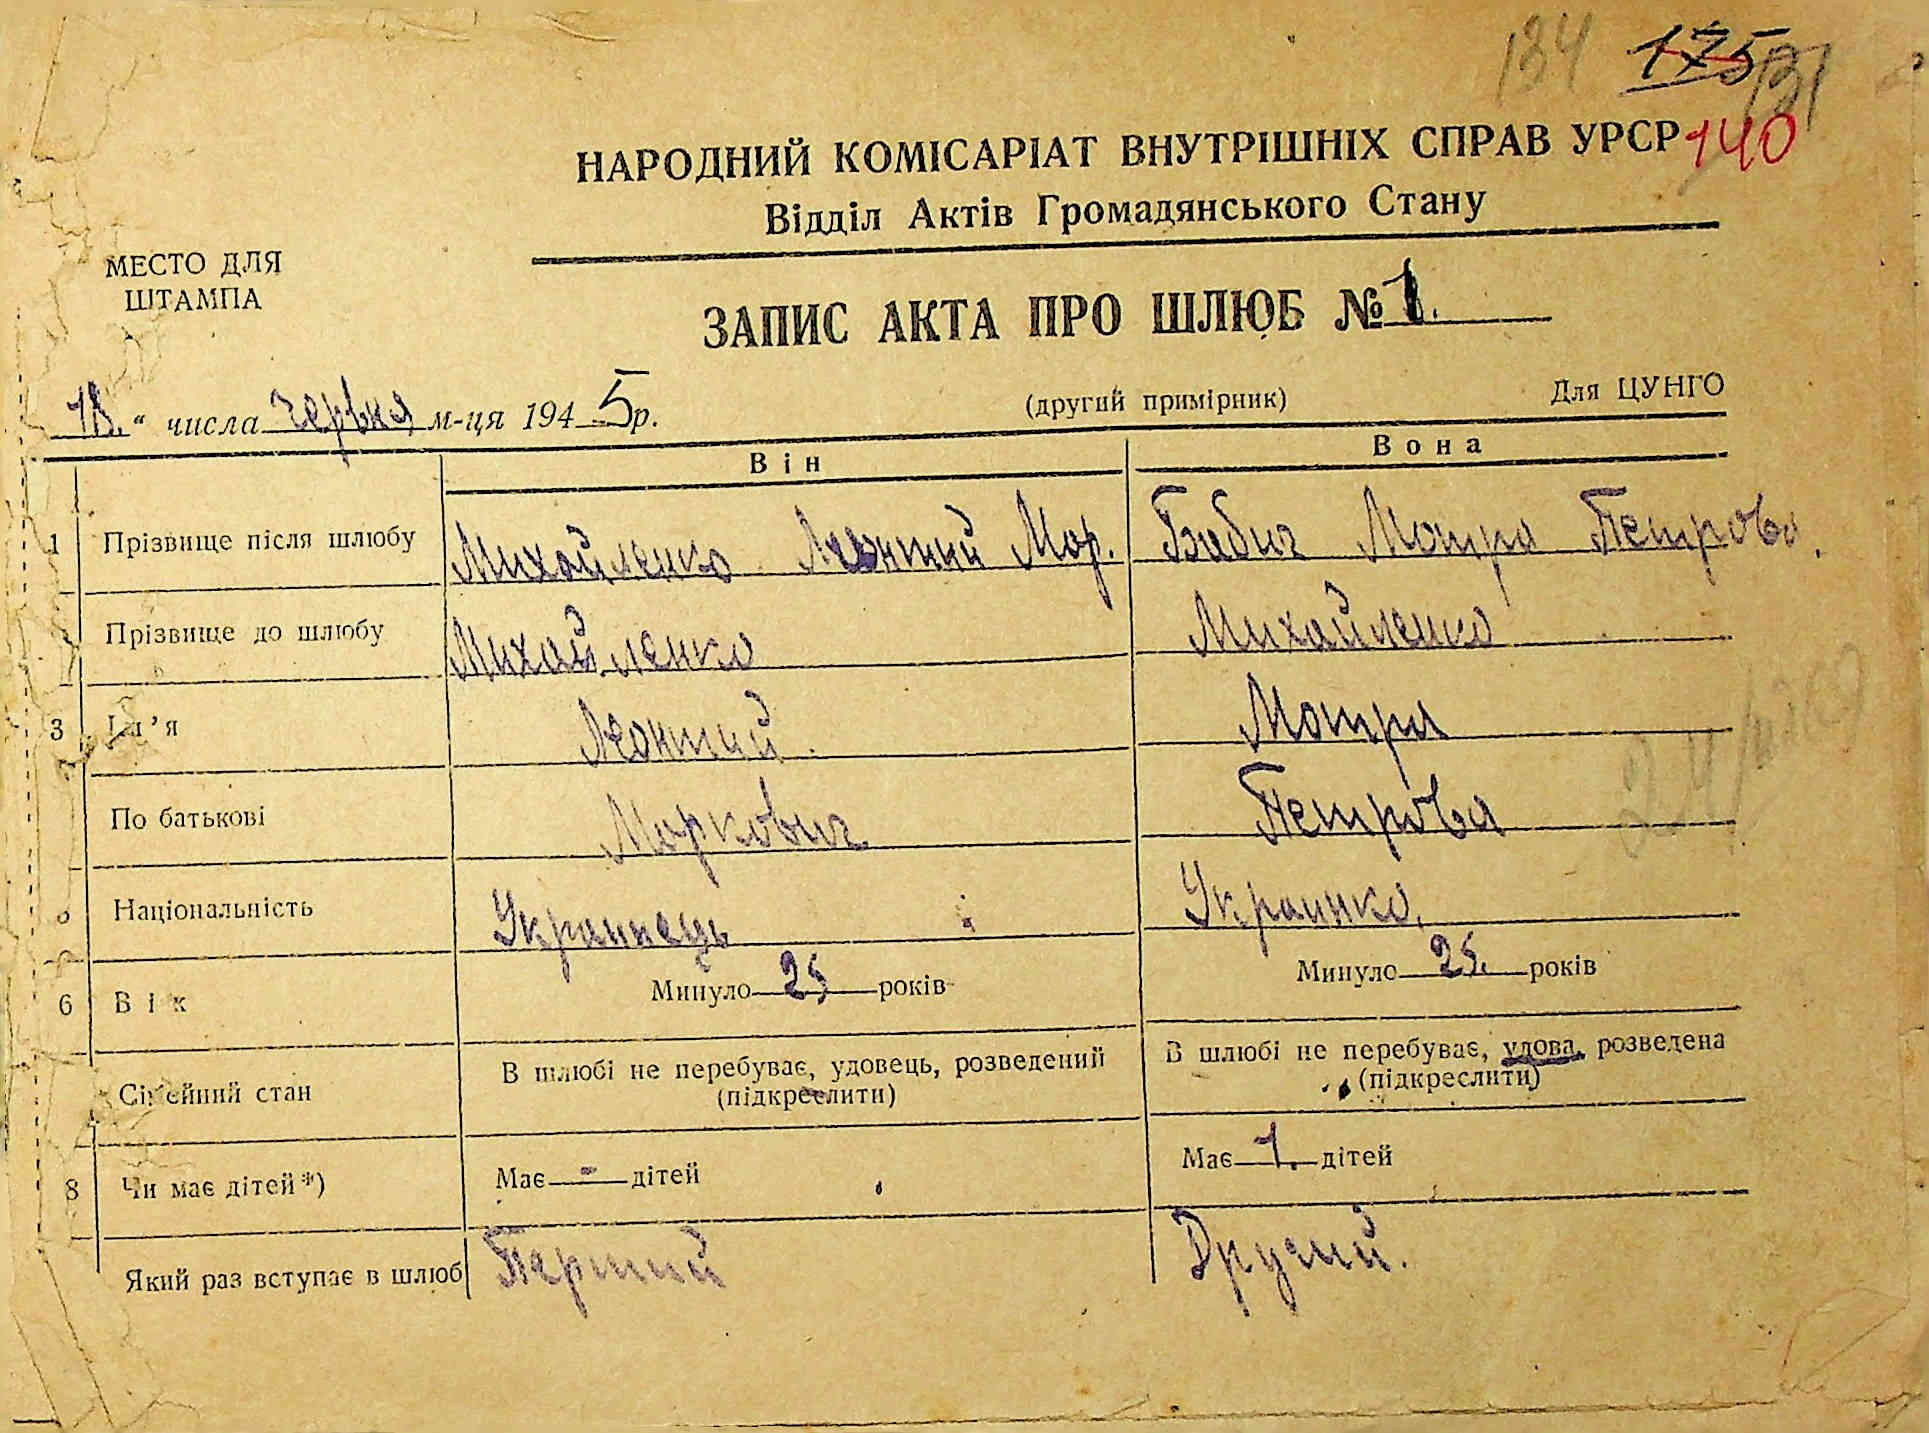 134 175 131
НАРОДНИЙ КОМІСАРІАТ ВНУТРІШНІХ СПРАВ УРСР 140
Відділ Актів Громадянського Стану
МЕСТО ДЛЯ
ШТАМПА
ЗАПИС АКТА ПРО ШЛЮБ № 1.
18. " числа червня м-ця 1945 р.
(другий примірник)
Для ЦУНГО
Він
Вона
1 Прізвище після шлюбу Михайленко Леонтий Мар. Бабич Мотря Петрова.
Прізвище до шлюбу Михайленко Михайленко
3 Ім'я Леонтий Мотря
По батькові Маркович Петрова
Національність Украинець Украинка.
6 Вік Минуло 25 років Минуло 25. років
Сімейний стан В шлюбі не перебуває, удовець, розведений В шлюбі не перебуває, удова, розведена
(підкреслити) (підкреслити)
8 Чи має дітей*) Має - дітей Має 1. дітей
Який раз вступає в шлюб Перший Другий.